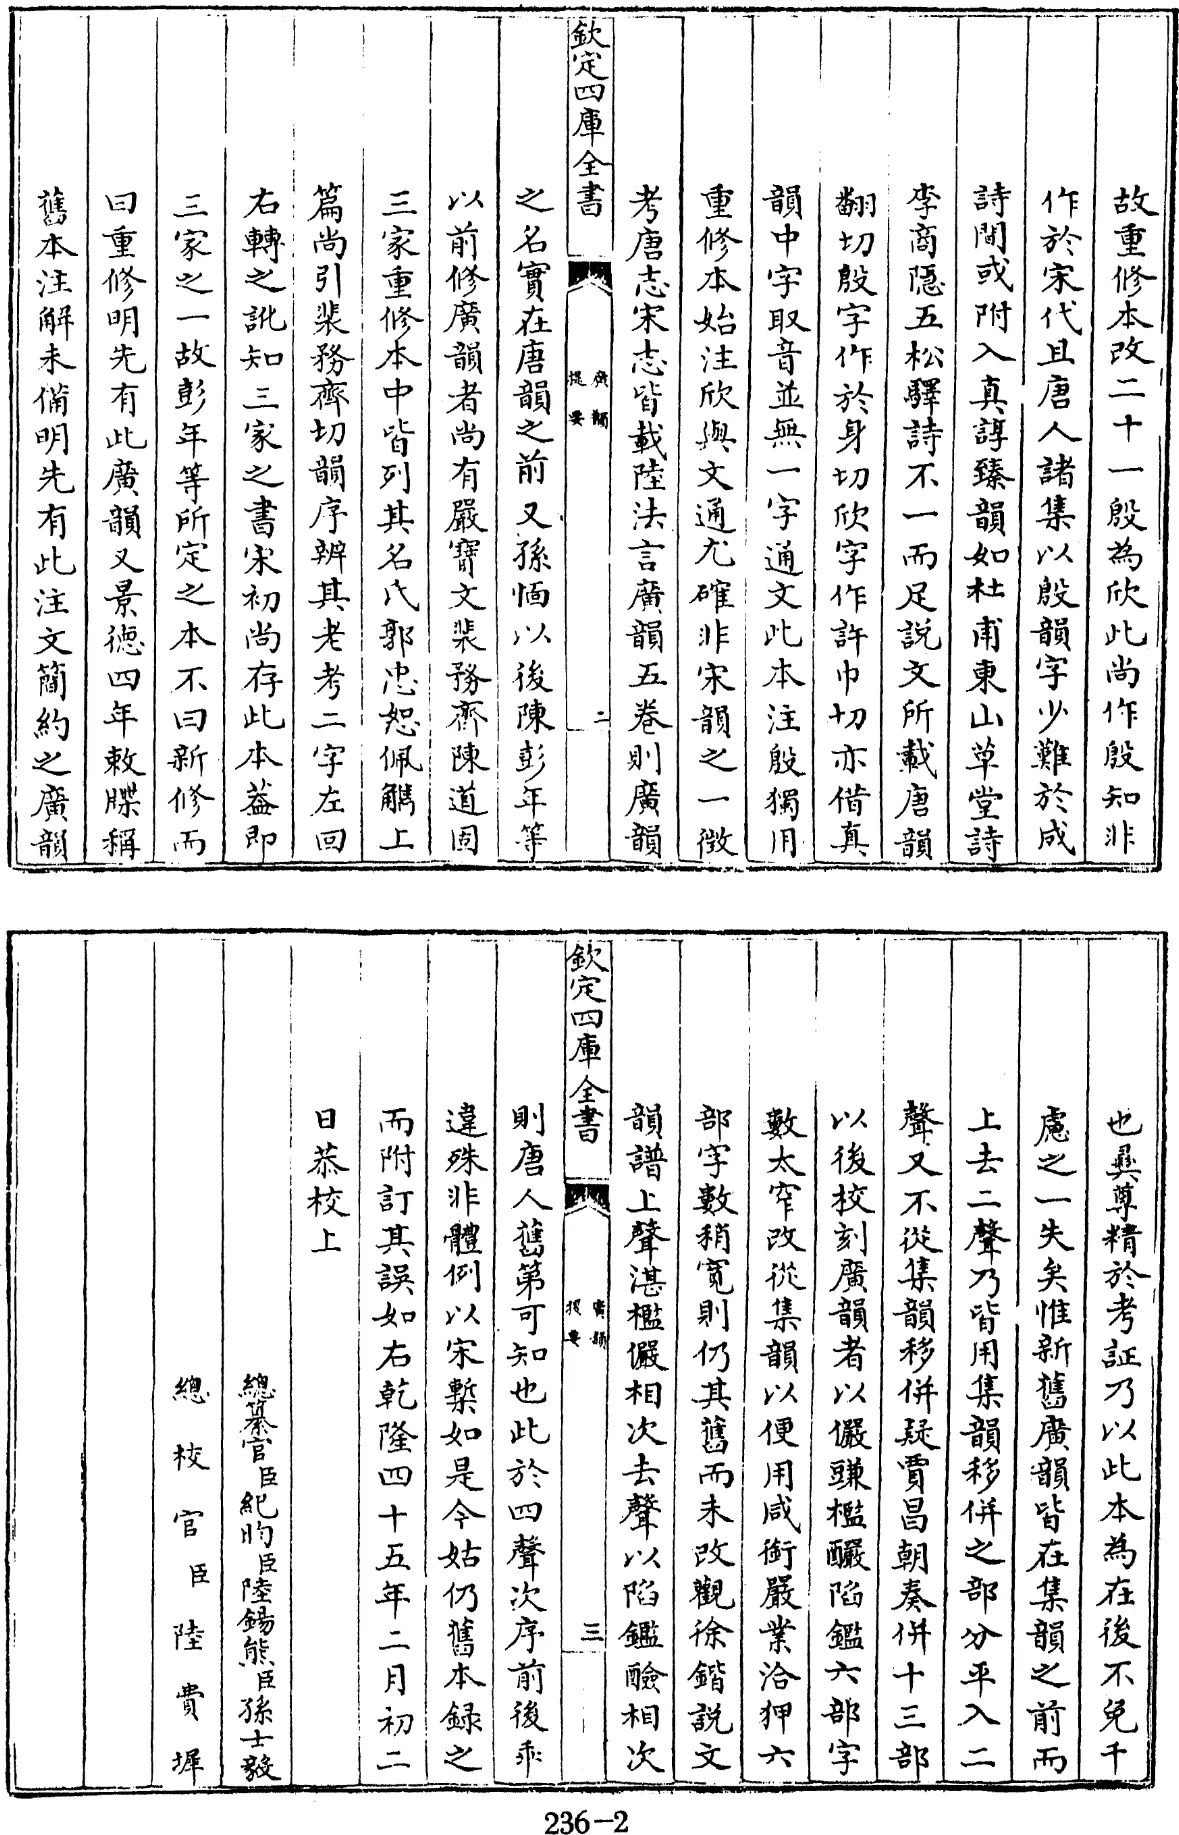 故重修本改二十一殷為欣此尚作殷知非
作於宋代且唐人諸集以殷韻字少難於成
詩間或附入真諄臻韻如杜甫東山草堂詩
李商隱五松驛詩不一而足說文所載唐韻
翻切殷字作於身切欣字作許巾切亦借真
韻中字取音並無一字通文此本注殷獨用
重修本始注欣與文通尤確非宋韻之一徵
考唐志宋志皆載陸法言廣韻五卷則廣韻
欽定四庫全書
廣韻
提要
二
之名實在唐韻之前又孫愐以後陳彭年等
以前修廣韻者尚有嚴寶文裴務齊陳道固
三家重修本中皆列其名氏郭忠恕佩觿上
篇尚引裴務齊切韻序辨其老考二字左回
右轉之訛知三家之書宋初尚存此本蓋即
三家之一故彭年等所定之本不曰新修而
曰重修明先有此廣韻又景德四年敕牒稱
舊本注解未備明先有此注文簡約之廣韻
也彞尊精於考証乃以此本為在後不免千
慮之一失矣惟新舊廣韻皆在集韻之前而
上去二聲乃皆用集韻移併之部分平入二
聲又不從集韻移併疑賈昌朝奏併十三部
以後校刻廣韻者以儼豏檻釅陷鑑六部字
數太窄改從集韻以便用咸銜嚴業洽狎六
部字數稍寬則仍其舊而未改觀徐鍇說文
韻譜上聲湛檻儼相次去聲以陷鑑醶相次
欽定四庫全書
廣韻
提要
三
則唐人舊第可知也此於四聲次序前後乖
違殊非體例以宋槧如是今姑仍舊本錄之
而附訂其誤如右乾隆四十五年二月初二
日恭校上
總纂官臣紀昀臣陸錫熊臣孫士毅
總校官臣陸費墀
236-2